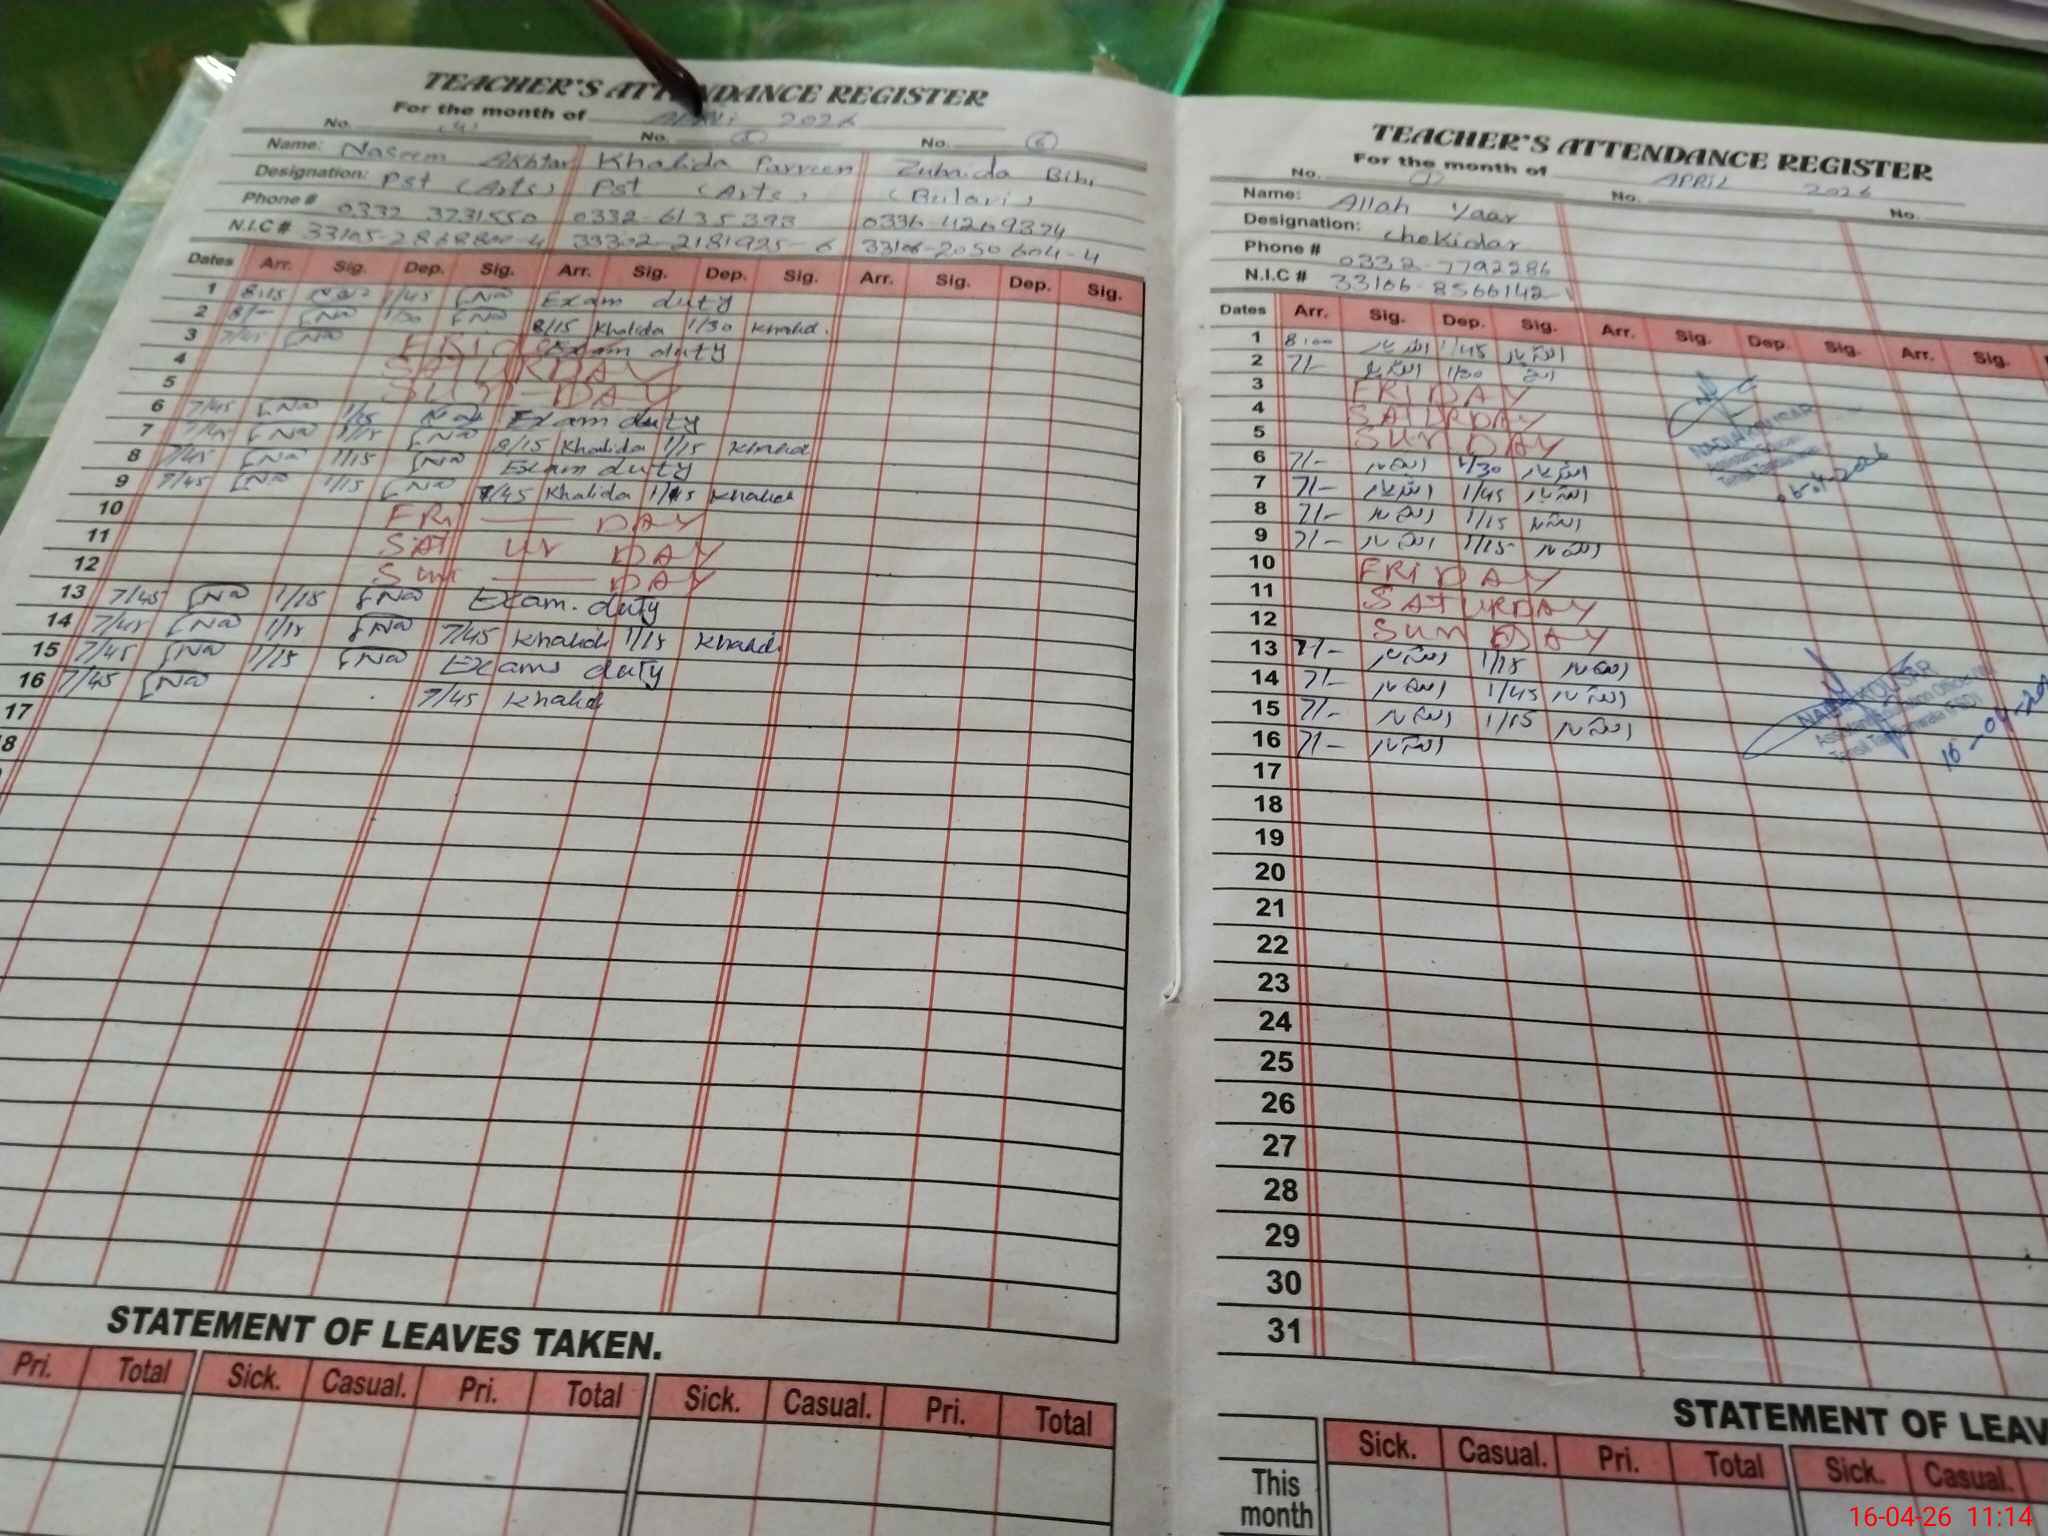 TEACHER'S ATTENDANCE REGISTER
For the month of APRIL 2026
No. (4) No. (5) No. (6)
Name: Naseem Akhtar Khalida Parveen Zubaida Bibi
Designation: Pst (Arts) Pst (Arts)
Phone # 0332 3731550 0332-6135393 0336-4269374
N.I.C # 33302-2181925-6
Dates Arr. Sig. Dep. Sig. Arr. Sig. Dep. Sig. Arr. Sig. Dep. Sig.
1 8:15 1/45 Exam duty
2 8/- 1/30 8/15 Khalida 1/30 Khalid.
3 7/45 FRIDAY Exam duty
4 SATURDAY
5 SUN-DAY
6 7/45 1/15 Exam duty
7 7/45 1/15 8/15 Khalida 1/15 Khalid
8 7/45 1/15 Exam duty
9 7/45 1/15 7/45 Khalida 1/15 Khalid
10 FRI — DAY
11 SAT UR DAY
12 Sun — DAY
13 7/45 1/15 Exam. duty
14 7/45 1/15 7/45 Khalid 1/15 Khalid
15 7/45 1/15 Exams duty
16 7/45 7/45 Khalid
17
STATEMENT OF LEAVES TAKEN.
Pri. Total Sick. Casual. Pri. Total Sick. Casual. Pri. Total
TEACHER'S ATTENDANCE REGISTER
For the month of APRIL 2026
No. No. No.
Name: Allah Yaar
Designation: Chokidar
Phone # 0332-7792286
N.I.C # 33106-8566142-1
Dates Arr. Sig. Dep. Sig. Arr. Sig. Dep. Sig. Arr. Sig.
1 8:00 اللہ یار 1/45 اللہ یار
2 7/- اللہ یار 1/30
3 FRIDAY
4 SATURDAY
5 SUN DAY
6 7/- اللہ یار 1/30 اللہ یار
7 7/- اللہ یار 1/45 اللہ یار
8 7/- اللہ یار 1/15 اللہ یار
9 7/- اللہ یار 1/15 اللہ یار
10 FRIDAY
11 SATURDAY
12 SUN DAY
13 7/- اللہ یار 1/15 اللہ یار
14 7/- اللہ یار 1/45 اللہ یار
15 7/- اللہ یار 1/15 اللہ یار
16 7/- اللہ یار
17
18
19
20
21
22
23
24
25
26
27
28
29
30
31
NADIA KOUSAR
06-04-2026
NADIA KOUSAR
STATEMENT OF LEAV
Sick. Casual. Pri. Total Sick. Casual.
This
month
16-04-26 11:14